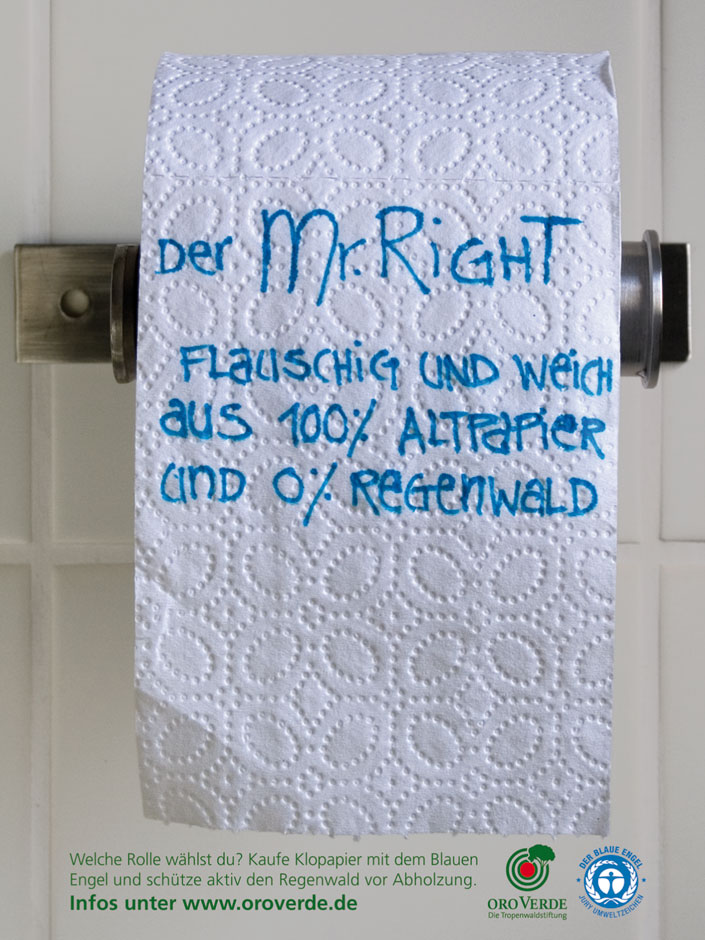 Der Mr. RiGHT
FLauscHiG UND weicH
aus 100% ALTPaPier
und 0% ReGenwaLD
Welche Rolle wählst du? Kaufe Klopapier mit dem Blauen
Engel und schütze aktiv den Regenwald vor Abholzung.
Infos unter www.oroverde.de
ORO VERDE
Die Tropenwaldstiftung
DER BLAUE ENGEL
JURY UMWELTZEICHEN